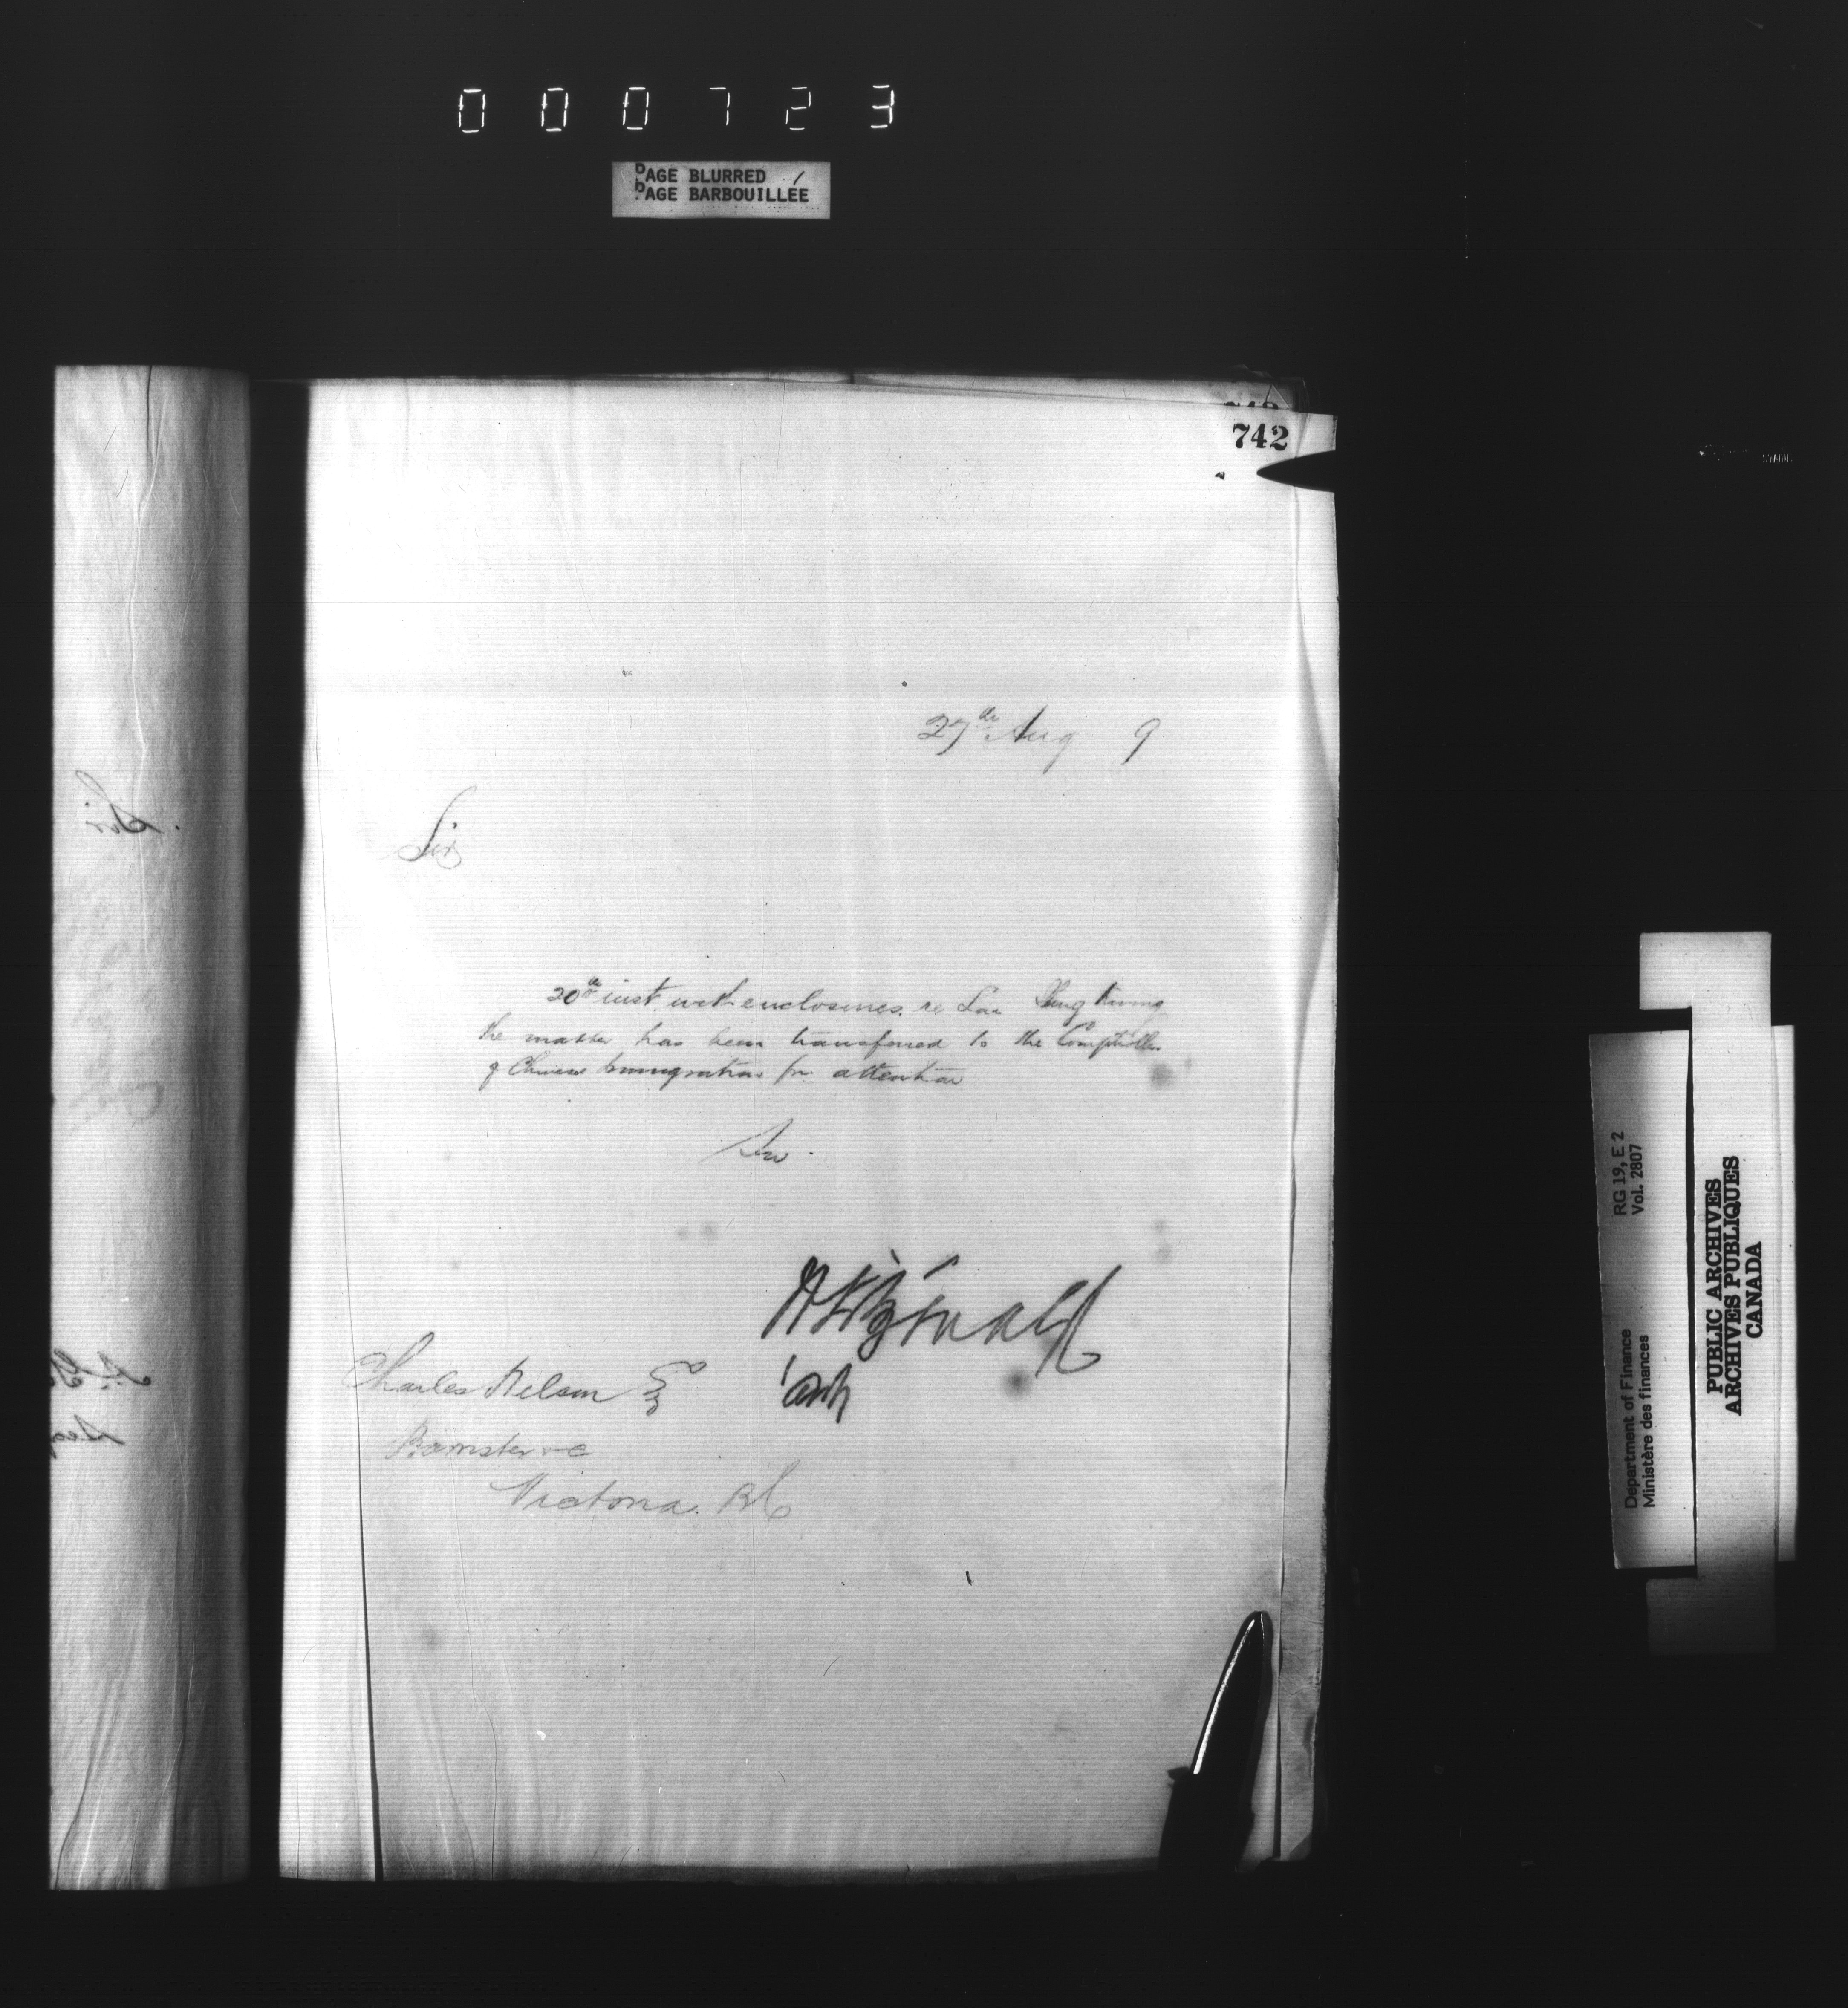 000723
PAGE BLURRED
PAGE BARBOUILLÉE
742
27th Aug 9
Sir
20th inst with enclosures re Lau
the matter has been transferred to the Comptroller
of Chinese Immigration for attention
Charles Nelson Esq
Barrister &c
Victoria. BC
RG 19, E 2
Vol. 2807
Department of Finance
Ministère des finances
PUBLIC ARCHIVES
ARCHIVES PUBLIQUES
CANADA
Sir